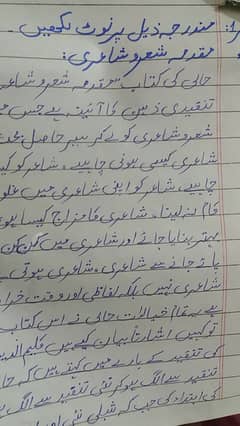 مندرجہ ذیل پر نوٹ لکھیں۔
مقدمہ شعر و شاعری:
حالی کی کتاب مقدمہ شعر و شاعری
تنقیدی ذہن کا آئینہ ہے جس میں
شعر و شاعری کو لے کر سیر حاصل بحث
شاعری کیسی ہونی چاہیے۔ شاعر کو
چاہیے۔ شاعر کو اپنی شاعری میں
کام لینا۔ شاعری کا مزاج کیسا ہو
بہتر بنایا جائے اور شاعری میں کن کن
پائے جانے سے شاعری، شاعری ہوتی
شاعری نہیں بلکہ لفاظی اور وقت
یہ تمام خیالات حالی نے اس کتاب
تو کہیں اشارتاً بیان کیے ہیں کلیم الدین
کی تنقید کے بارے میں کہتے ہیں کہ
تنقید سے الگ ہو کر نئی تنقید سے
کی ابتداء کی جب کہ شبلی نئی اور